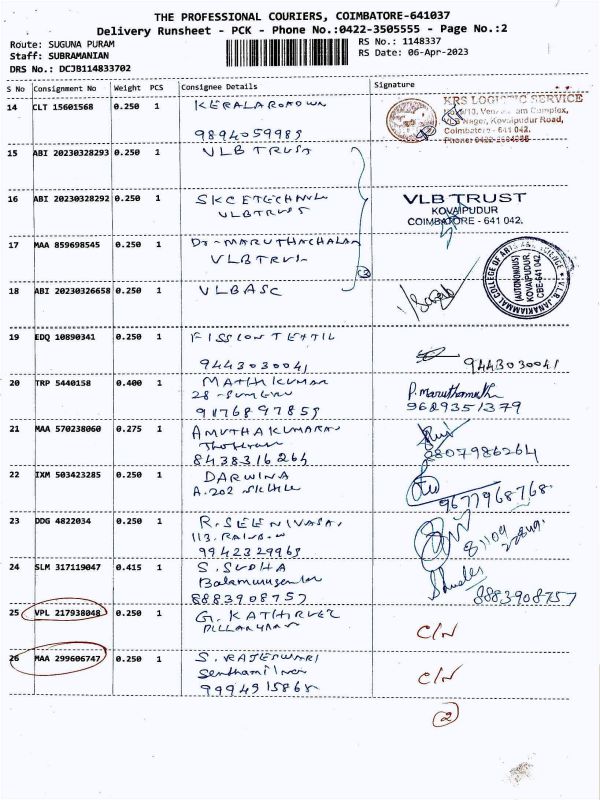 THE PROFESSIONAL COURIERS, COIMBATORE-641037
Delivery Runsheet - PCK - Phone No.:0422-3505555 - Page No.:2
Route: SUGUNA PURAM
RS No.: 1148337
Staff: SUBRAMANIAN
RS Date: 06-Apr-2023
DRS No.: DCJB114833702
S No Consignment No Weight PCS Consignee Details Signature
14 CLT 15601568 0.250 1
KRS LOGISTIC SERVICE
Kovaipudur Road,
Coimbatore - 641 042.
9894059989
15 ABI 20230328293 0.250 1 VLB TRUST
16 ABI 20230328292 0.250 1
VLB TRUST
KOVAIPUDUR
COIMBATORE - 641 042.
17 MAA 859698545 0.250 1 Dr-MARUTHACHALAM
18 ABI 20230326658 0.250 1 VLBASC
V.L.B. JANAKIAMMAL COLLEGE OF ARTS AND SCIENCE
(AUTONOMOUS)
KOVAIPUDUR,
CBE-641 042.
19 EDQ 10890341 0.250 1
9443030041 9443030041
20 TRP 5440158 0.400 1 MATHIKUMAR
P. Maruthamuthu
9176897859 9689351379
21 MAA 570238060 0.275 1 AMUTHAKUMARAN
8438316264 8807986264
22 IXM 503423285 0.250 1 DARWINA
A.202
9677968768
23 DDG 4822034 0.250 1 R. SEENIVASA
113.
9942329969
24 SLM 317119047 0.415 1 S. SUDHA
8883908757 8883908757
25 VPL 217938048 0.250 1 G. KATHIRVEL
C/N
26 MAA 299606747 0.250 1 S. RAJESWARI
C/N
9994915868
2